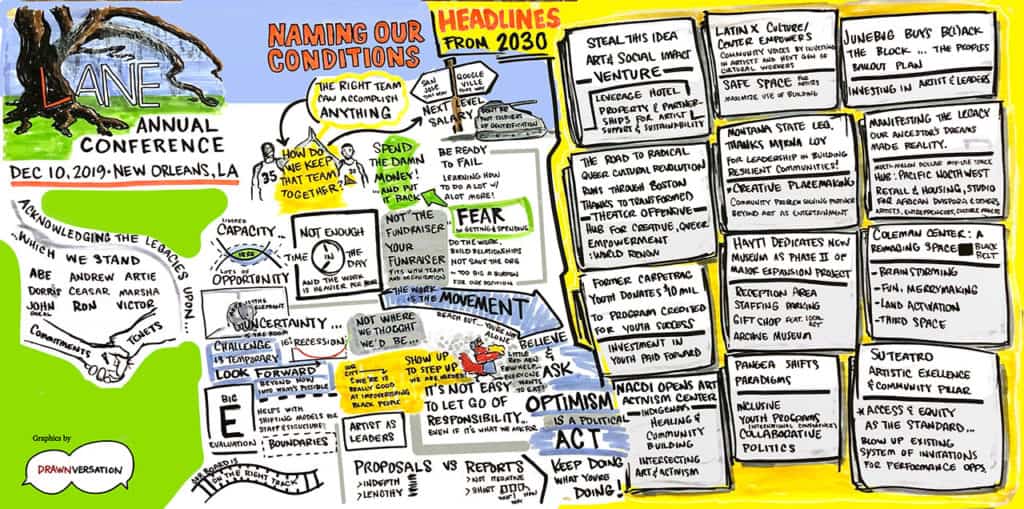 LANE
ANNUAL
CONFERENCE
DEC 10, 2019 · NEW ORLEANS, LA
ACKNOWLEDGING THE LEGACIES
UPON...
WHICH WE STAND
ABE ANDREW ARTIE
DORRIS CEASAR MARSHA
JOHN RON VICTOR
COMMITMENTS
TENETS
Graphics by
DRAWNVERSATION
NAMING OUR
CONDITIONS
THE RIGHT TEAM
CAN ACCOMPLISH
ANYTHING
SAN
JOSE
GOOGLE
VILLE
NEXT LEVEL
SALARY
OF GENTRIFICATION
35
HOW DO
WE KEEP
THAT TEAM
TOGETHER?
SPEND
THE DAMN
MONEY!
...AND PUT
IT BACK
BE READY
TO FAIL
LEARNING HOW
TO DO A LOT W/
ALOT MORE!
FEAR
IN GETTING & SPENDING
LIMITED
CAPACITY...
LOTS OF
OPPORTUNITY
NOT ENOUGH
TIME IN THE DAY
AND THE WORK
IS HEAVIER
NOT THE
FUNDRAISER
YOUR
FUNRAISER
FITS WITH TEAM
AND ORGANIZATION
DO THE WORK,
BUILD RELATIONSHIPS
NOT SAVE THE ORG
- TOO BIG A BURDEN
FOR ONE POSITION
THE WORK
IS THE MOVEMENT
UNCERTAINTY...
CHALLENGE
IS TEMPORARY
RECESSION
LOOK FORWARD
BEYOND NOW
INTO WHAT'S POSSIBLE
NOT WHERE
WE THOUGHT
WE'D BE...
REACH OUT... YOU'RE NOT
ALONE
BELIEVE
& ASK
SHOW UP
TO STEP UP
WE ARE NEEDED
EVERYONE
WANTS
TO EAT!
REALLY GOOD
AT IMPOVERISHING
BLACK PEOPLE
IT'S NOT EASY
TO LET GO OF
RESPONSIBILITY...
EVEN IF IT'S WHAT WE ASK FOR
OPTIMISM
IS A POLITICAL
ACT
KEEP DOING
WHAT YOU'RE
DOING!
BIG
E
EVALUATION
HELPS WITH
SHIFTING MODELS FOR
STAFF STRUCTURE
BOUNDARIES
ARTIST AS
LEADERS
OUR BOARD IS
ON THE RIGHT TRACK
PROPOSALS VS REPORTS
> INDEPTH
> LENGTHY
> SHORT
HEADLINES
FROM 2030
STEAL THIS IDEA
ART & SOCIAL IMPACT
VENTURE
LEVERAGE HOTEL
PROPERTY & PARTNER-
SHIPS FOR ARTIST
SUPPORT & SUSTAINABILITY
LATINX CULTURE/
CENTER EMPOWERS
COMMUNITY VOICES BY INVESTING
IN ARTISTS AND NEXT GEN OF
CULTURAL WORKERS
SAFE SPACE FOR ARTISTS
MAXIMIZE USE OF BUILDING
JUNEBUG BUYS B(L)ACK
THE BLOCK... THE PEOPLES
BAILOUT PLAN
INVESTING IN ARTIST & LEADERS
THE ROAD TO RADICAL
QUEER CULTURAL REVOLUTION
RUNS THROUGH BOSTON
THANKS TO TRANSFORMED
THEATER OFFENSIVE
HUB FOR CREATIVE, QUEER
EMPOWERMENT
: WORLD RENOWN
MONTANA STATE LEG.
THANKS MYRNA LOY
FOR LEADERSHIP IN BUILDING
RESILIENT COMMUNITIES!
* CREATIVE PLACEMAKING
COMMUNITY PROBLEM SOLVING PARTNER
BEYOND ART AS ENTERTAINMENT
MANIFESTING THE LEGACY
OUR ANCESTOR'S DREAMS
MADE REALITY.
HUB: PACIFIC NORTHWEST
RETAIL & HOUSING, STUDIO
FOR AFRICAN DIASPORA & OTHERS
ARTISTS, ENTREPRENEURS, CULTURE SPACES
FORMER CARPETBAG
YOUTH DONATES $10 MIL
TO PROGRAM CREDITED
FOR YOUTH SUCCESS
INVESTMENT IN
YOUTH PAID FORWARD
HAYTI DEDICATES NOW
MUSEUM AS PHASE II OF
MAJOR EXPANSION PROJECT
RECEPTION AREA
STAFFING PARKING
GIFT SHOP FEAT. LOCAL ART
ARCHIVE MUSEUM
COLEMAN CENTER: A
REIMAGING SPACE BLACK
BELT
- BRAINSTORMING
- FUN, MERRYMAKING
- LAND ACTIVATION
- THIRD SPACE
NACDI OPENS ART
ACTIVISM CENTER
INDIGENOUS
HEALING &
COMMUNITY
BUILDING
INTERSECTING
ART & ACTIVISM
PANGEA SHIFTS
PARADIGMS
INCLUSIVE
YOUTH PROGRAMS
INTERNATIONAL CONFERENCES
COLLABORATIVE
POLITICS
SU TEATRO
ARTISTIC EXELLENCE
& COMMUNITY PILLAR
* ACCESS & EQUITY
AS THE STANDARD...
BLOW UP EXISTING
SYSTEM OF INVITATIONS
FOR PERFORMANCE OPPS.